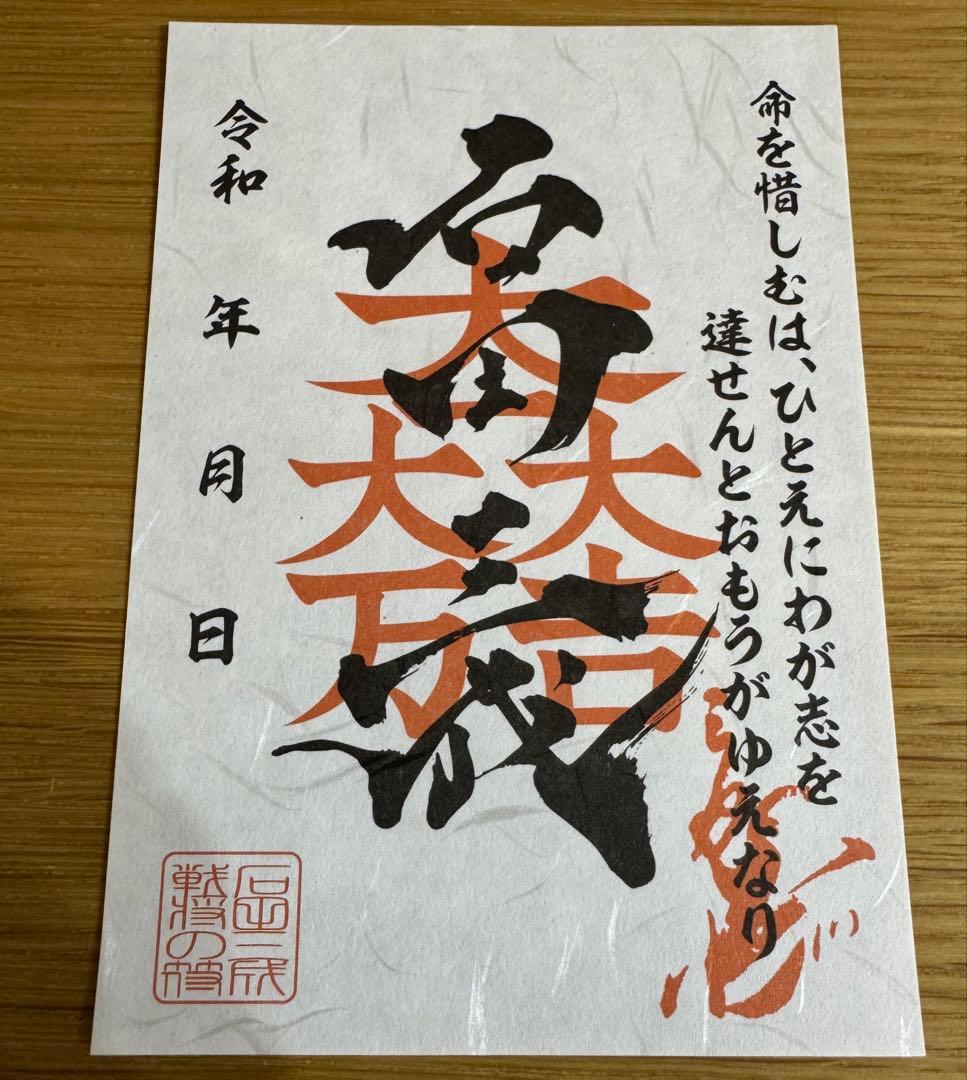 命を惜しむは、ひとえにわが志を
達せんとおもうがゆえなり
石田三成
大一大万大吉
令和 年 月 日
石田三成
戦将の符